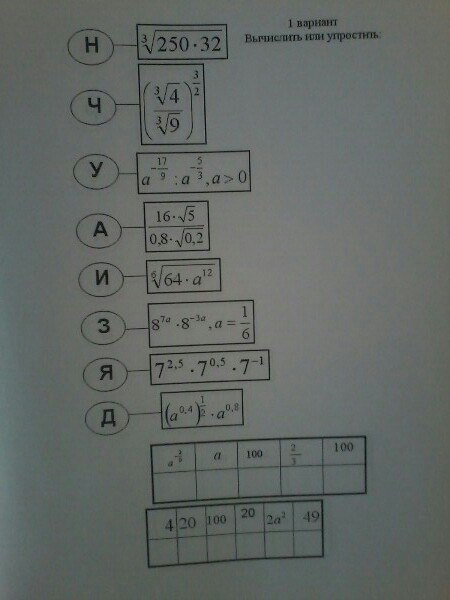 1 вариант
Вычислить или упростить:
Н ∛(250·32)
Ч (∛4/∛9)^(3/2)
У a^(-17/9) : a^(-5/3), a > 0
А (16·√5)/(0,8·√0,2)
И ⁶√(64·a¹²)
З 8^(7a)·8^(-3a), a = 1/6
Я 7^(2,5)·7^(0,5)·7^(-1)
Д (a^(0,4))^(1/2)·a^(0,8)
a^(-2/9) a 100 2/3 100
4 20 100 20 2a² 49